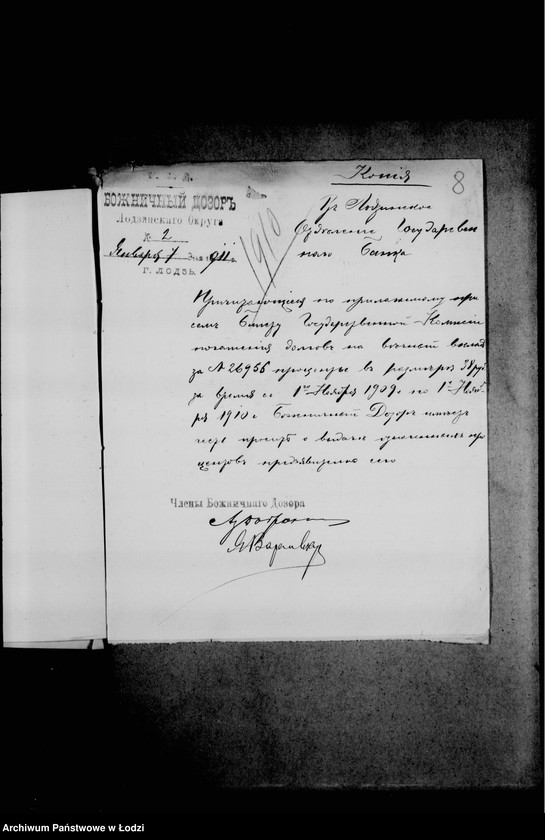 Копія
8
БОЖНИЧНЫЙ ДОЗОРЪ
Лодзинскаго Округа
№ 2
Января 7 дня 1911 г.
Г. ЛОДЗЬ.
1910
Въ Лодзинское
Отдѣленіе Государствен
наго Банка
Причитающіеся по прилагаемому при
семъ Билету Государственной Коммисіи
погашенія долговъ на вѣчный вкладъ
за № 26956 проценты въ размѣрѣ 38 руб
за время съ 1го Ноября 1909 г по 1е Нояб
ря 1910 г Божничный Дозоръ имѣетъ
честь просить о выдачѣ означенныхъ про
центовъ предъявителю сего
Члены Божничнаго Дозора
Archiwum Państwowe w Łodzi